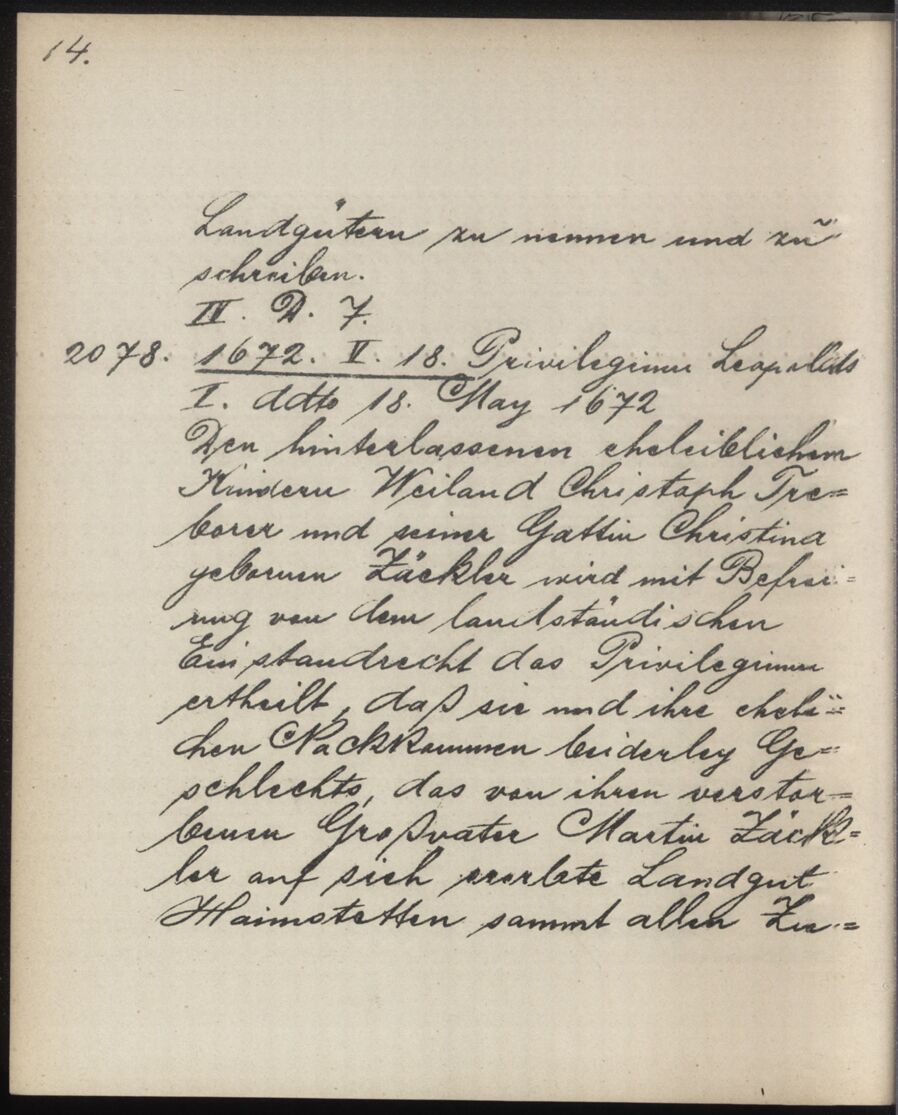 14.
Landgütern zu nennen und zu
schreiben.
IV. D. 7.
2078. 1672. V. 18. Privilegium Leopolds
I. ddto 18. May 1672
Den hinterlassenen eheleiblichem
Kindern Weiland Christoph Tre=
borer und seiner Gattin Christina
gebornen Zäckler wird mit Befrei=
ung von dem landständischen
Einstandrecht das Privilegium
ertheilt, daß sie und ihre eheli=
chen Nackkommen beiderley Ge=
schlechts, das von ihren verstor=
benen Großvater Martin Zäck=
ler auf sich ererbte Landgut
Haimstetten sammt allen Zu=